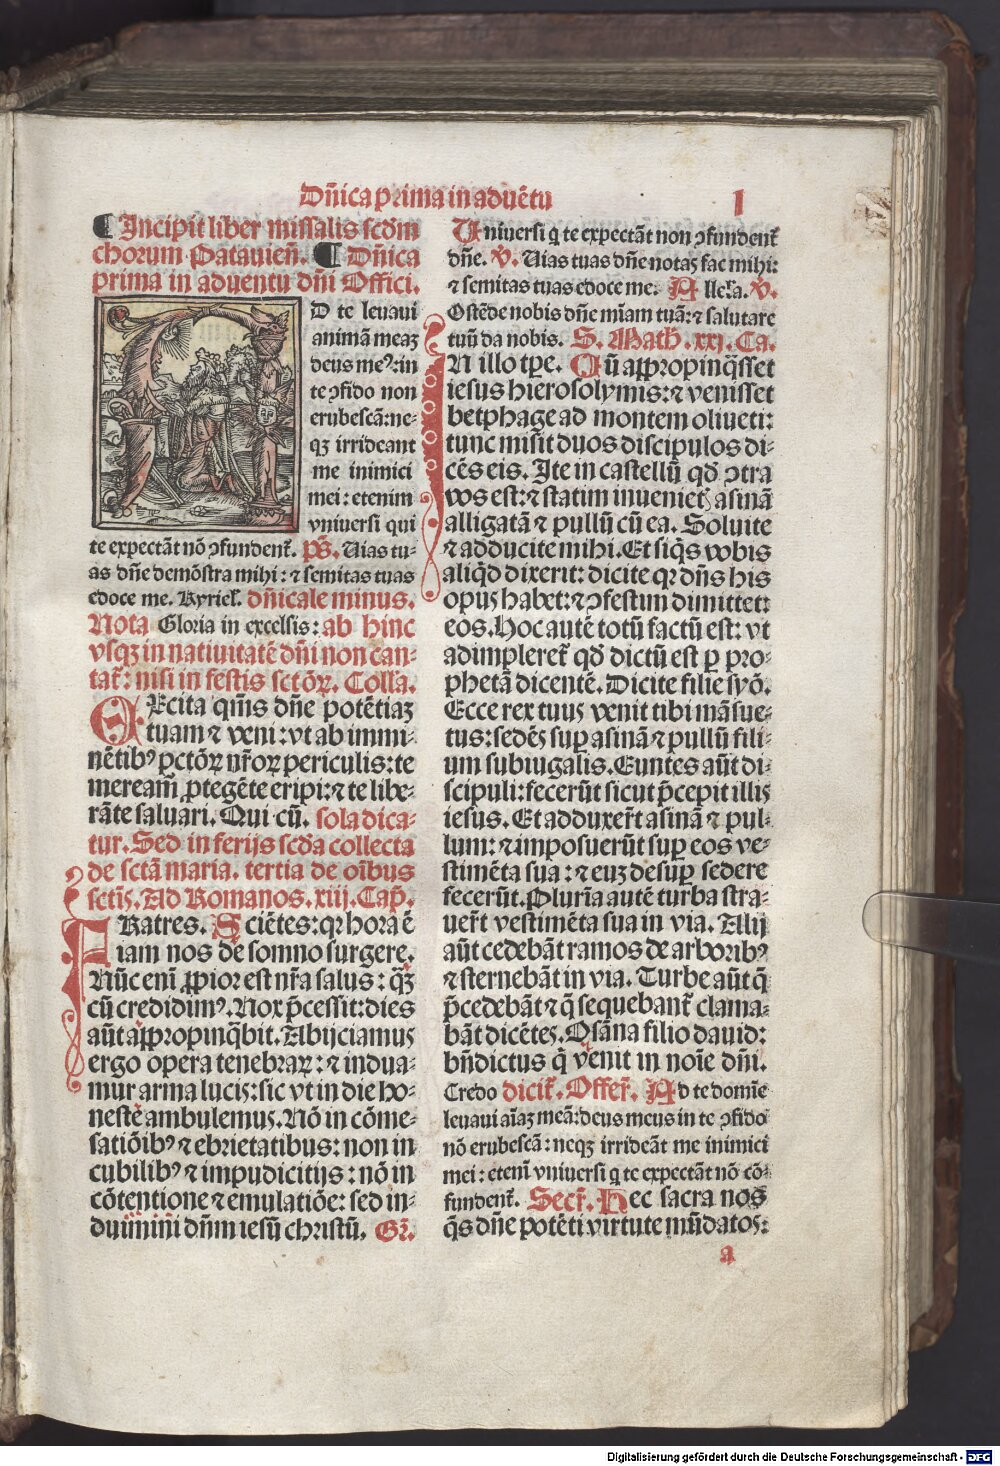 Dñica prima in aduẽtu
I
¶ Incipit liber missalis scd̃m
chorum Patauieñ. ¶ Dñica
prima in aduentu dñi Offici.
AD te leuaui
animã meaꝫ
deus meꝰ: in
te ꝯfido non
erubescã: ne-
qꝫ irrideant
me inimici
mei: etenim
vniuersi qui
te expectãt nõ ꝯfundent̃. p̃s. Uias tu-
as dñe demõstra mihi: ⁊ semitas tuas
edoce me. Kyriel̃. dñicale minus.
Nota Gloria in excelsis: ab hinc
vsqꝫ in natiuitatẽ dñi non can-
tat̃: nisi in festis sctõꝝ. Coll̃a.
EXcita qm̃s dñe potẽtiaꝫ
tuam ⁊ veni: vt ab immi-
nẽtibꝰ pctõꝝ nr̃oꝝ periculis: te
meream̃ ꝓtegẽte eripi: ⁊ te libe-
rãte saluari. Qui cũ. sola dica-
tur. Sed in ferijs scd̃a collecta
de sctã maria. tertia de oĩbus
sctĩs. Ad Romanos. xiij. Cap̃.
FRatres. Sciẽtes: qꝛ hora ẽ
iam nos de somno surgere.
Nũc enĩ ꝓpior est nr̃a salus: q̃ꝫ
cũ credidimꝰ. Nox p̃cessit: dies
aũt appropinq̃bit. Abijciamus
ergo opera tenebraꝝ: ⁊ indua-
mur arma lucis: sic vt in die ho-
nestẽ ambulemus. Nõ in cõme-
satiõibꝰ ⁊ ebrietatibus: non in
cubilibꝰ ⁊ impudicitijs: nõ in
cõtentione ⁊ emulatiõe: sed in-
duimini dñm iesũ christũ. Gr̃.
Uniuersi q te expectãt non ꝯfundent̃
dñe. v̄. Uias tuas dñe notas fac mihi:
⁊ semitas tuas edoce me. Allel̃a. v̄.
Ostẽde nobis dñe mĩam tuã: ⁊ salutare
tuũ da nobis. S. Math̃. xxj. Ca.
IN illo tp̃e. Cũ appropinq̃sset
iesus hierosolymis: ⁊ venisset
betphage ad montem oliueti:
tunc misit duos discipulos di-
cẽs eis. Ite in castellũ qd̃ ꝯtra
vos est: ⁊ statim inueniet̃ asinã
alligatã ⁊ pullũ cũ ea. Soluite
⁊ adducite mihi. Et siq̃s vobis
aliq̃d dixerit: dicite qꝛ dñs his
opus habet: ⁊ ꝯfestim dimittet:
eos. Hoc autẽ totũ factũ est: vt
adimpleret̃ qd̃ dictũ est ꝑ pro-
phetã dicentẽ. Dicite filie syõ.
Ecce rex tuus venit tibi mãsue-
tus: sedẽs sup̃ asinã ⁊ pullũ fili-
um subiugalis. Euntes aũt di-
scipuli: fecerũt sicut p̃cepit illis
iesus. Et adduxer̃t asinã ⁊ pul-
lum: ⁊ imposuerũt sup̃ eos ve-
stimẽta sua: ⁊ euꝫ desup̃ sedere
fecerũt. Plurĩa autẽ turba stra-
uer̃t vestimẽta sua in via. Alij
aũt cedebãt ramos de arboribꝰ
⁊ sternebãt in via. Turbe aũt q̃
p̃cedebãt ⁊ q̃ sequebant̃ clama-
bãt dicẽtes. Osãna filio dauid:
bñdictus q̃ venit in noĩe dñi.
Credo dicit̃. Offer̃. Ad te domĩe
leuaui aĩaꝫ meã: deus meus in te ꝯfido
nõ erubescã: neqꝫ irrideãt me inimici
mei: etenĩ vniuersi q te expectãt nõ cõ-
fundent̃. Secr̃. Hec sacra nos
q̃s dñe potẽti virtute mũdatos:
a
Digitalisierung gefördert durch die Deutsche Forschungsgemeinschaft - DFG